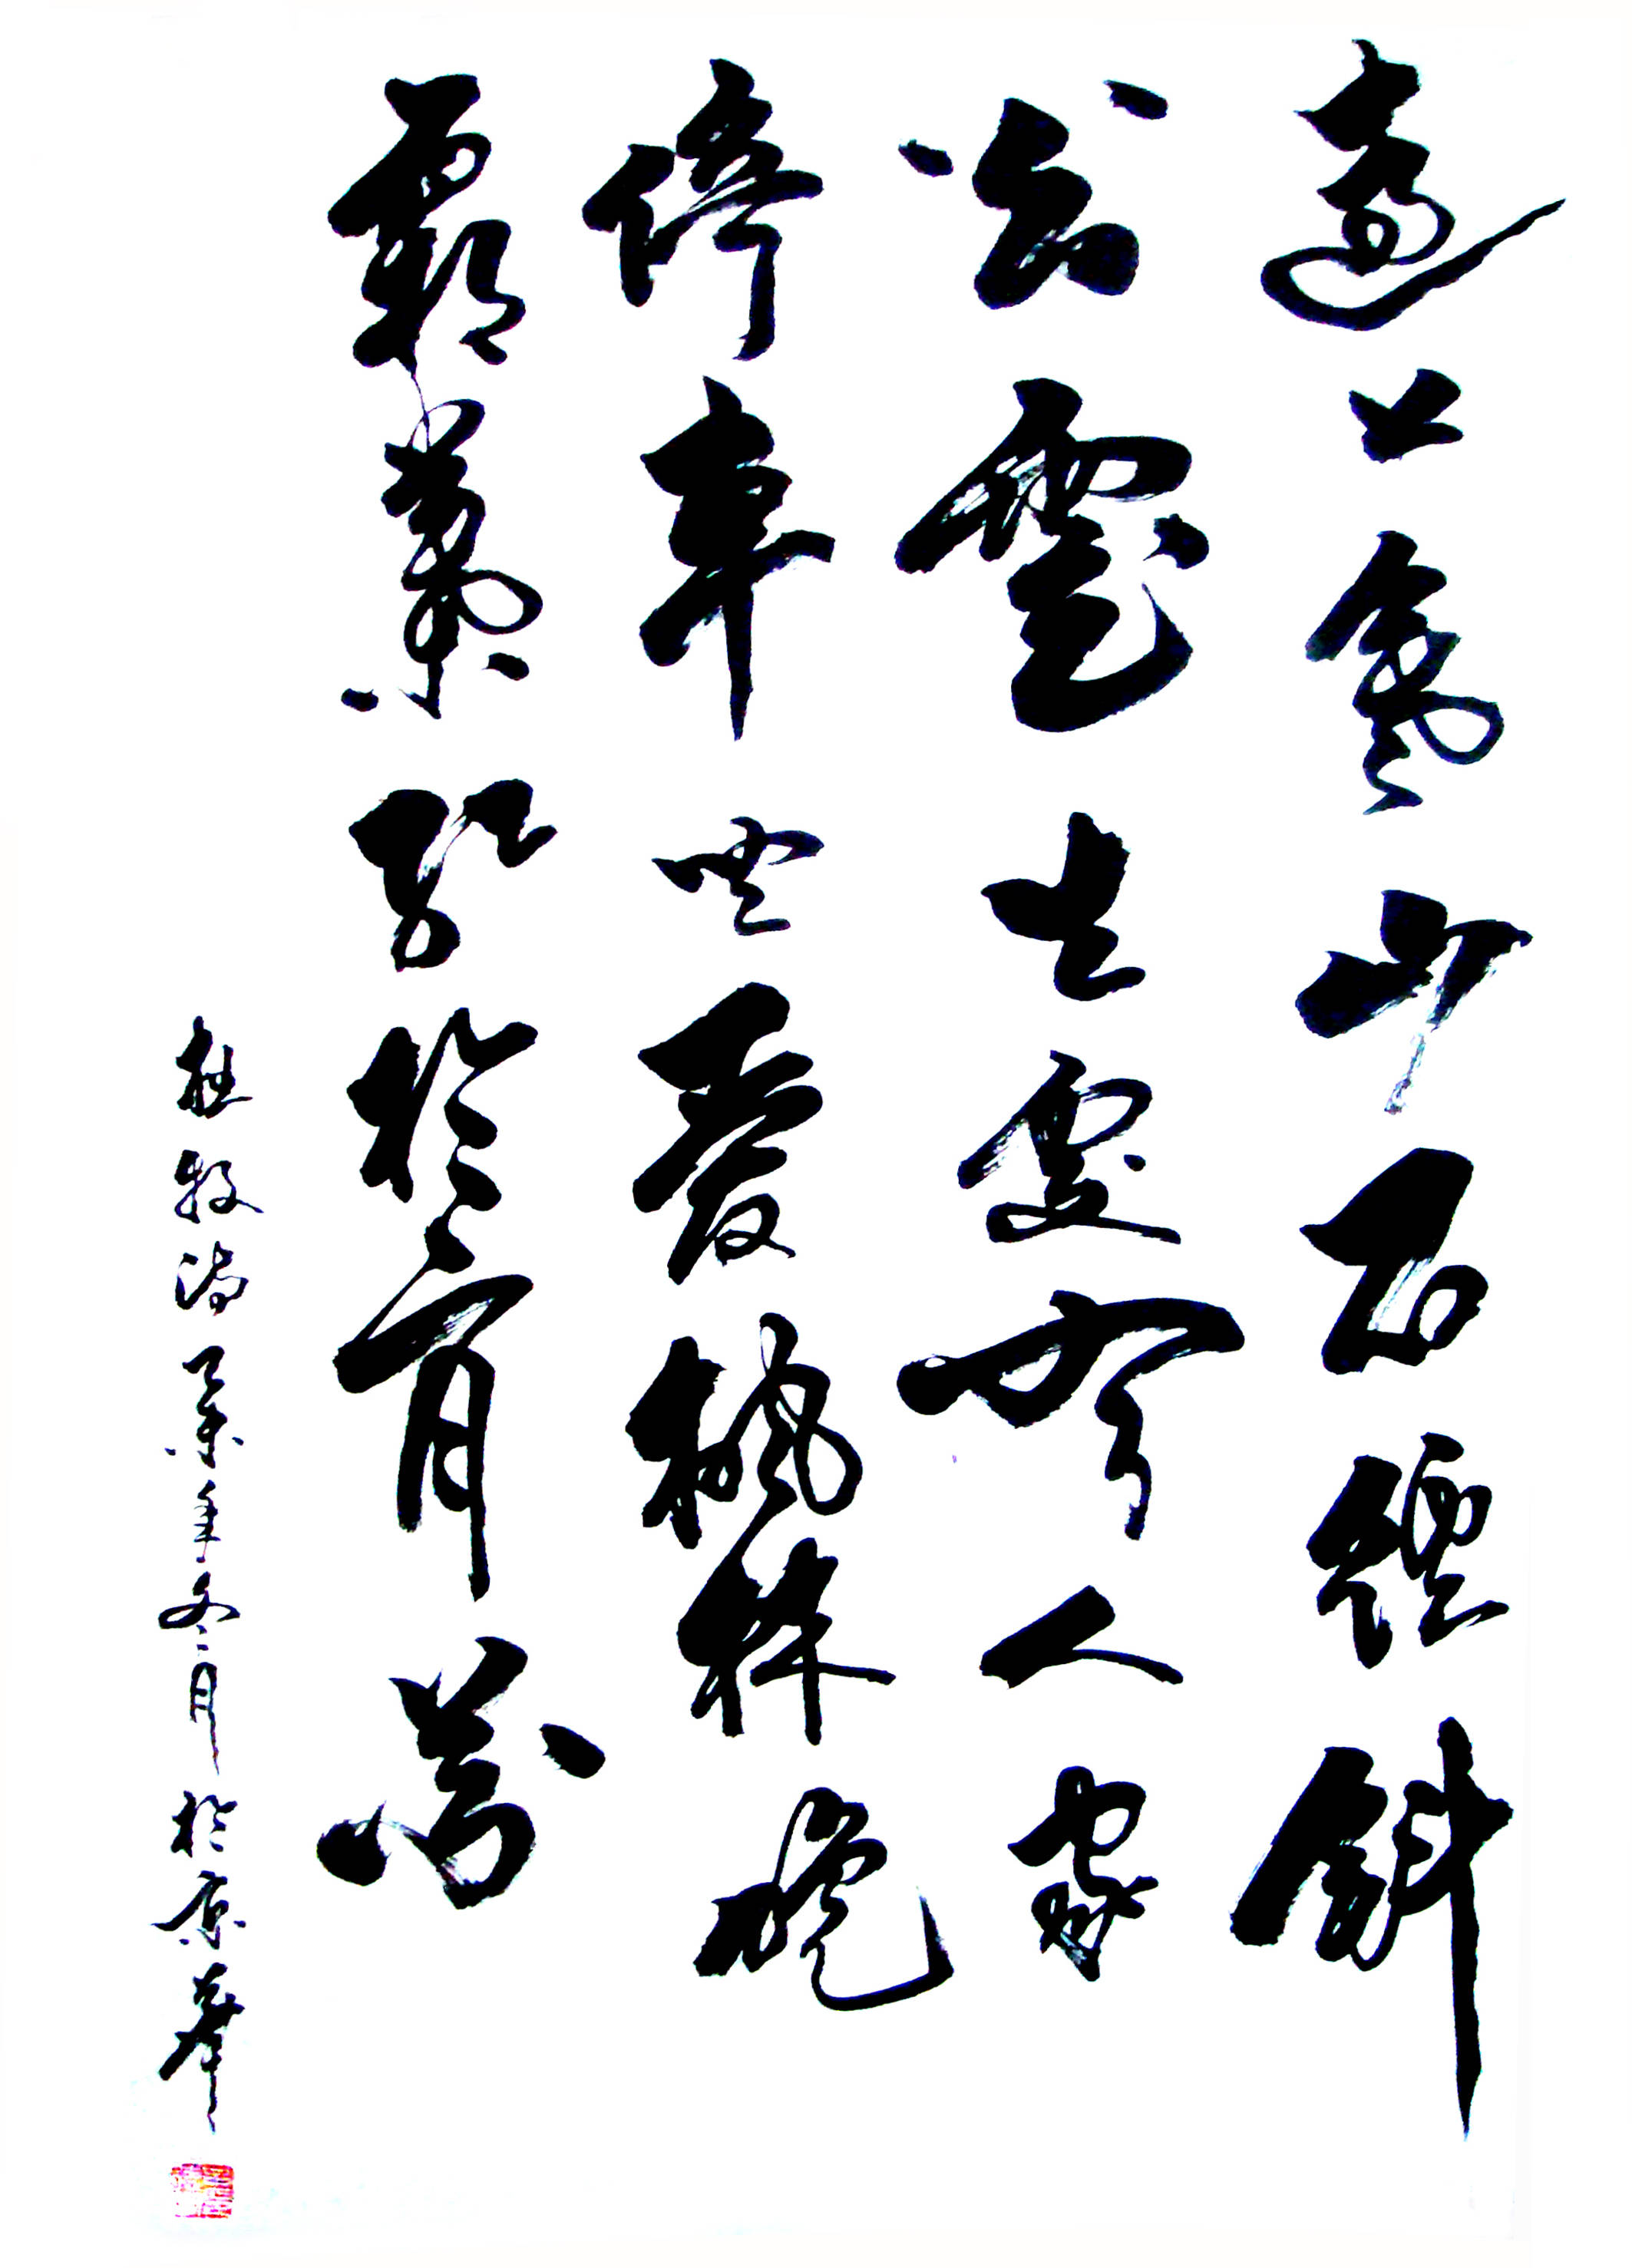 遠上寒山石徑斜
白雲生處有人家
停車坐愛楓林晚
霜葉紅於二月花
杜牧詩 乙未年冬月於京華